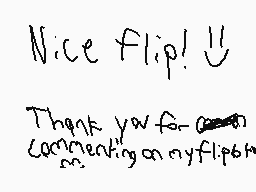 Nice flip! U
Thank you for
commenting on my flip